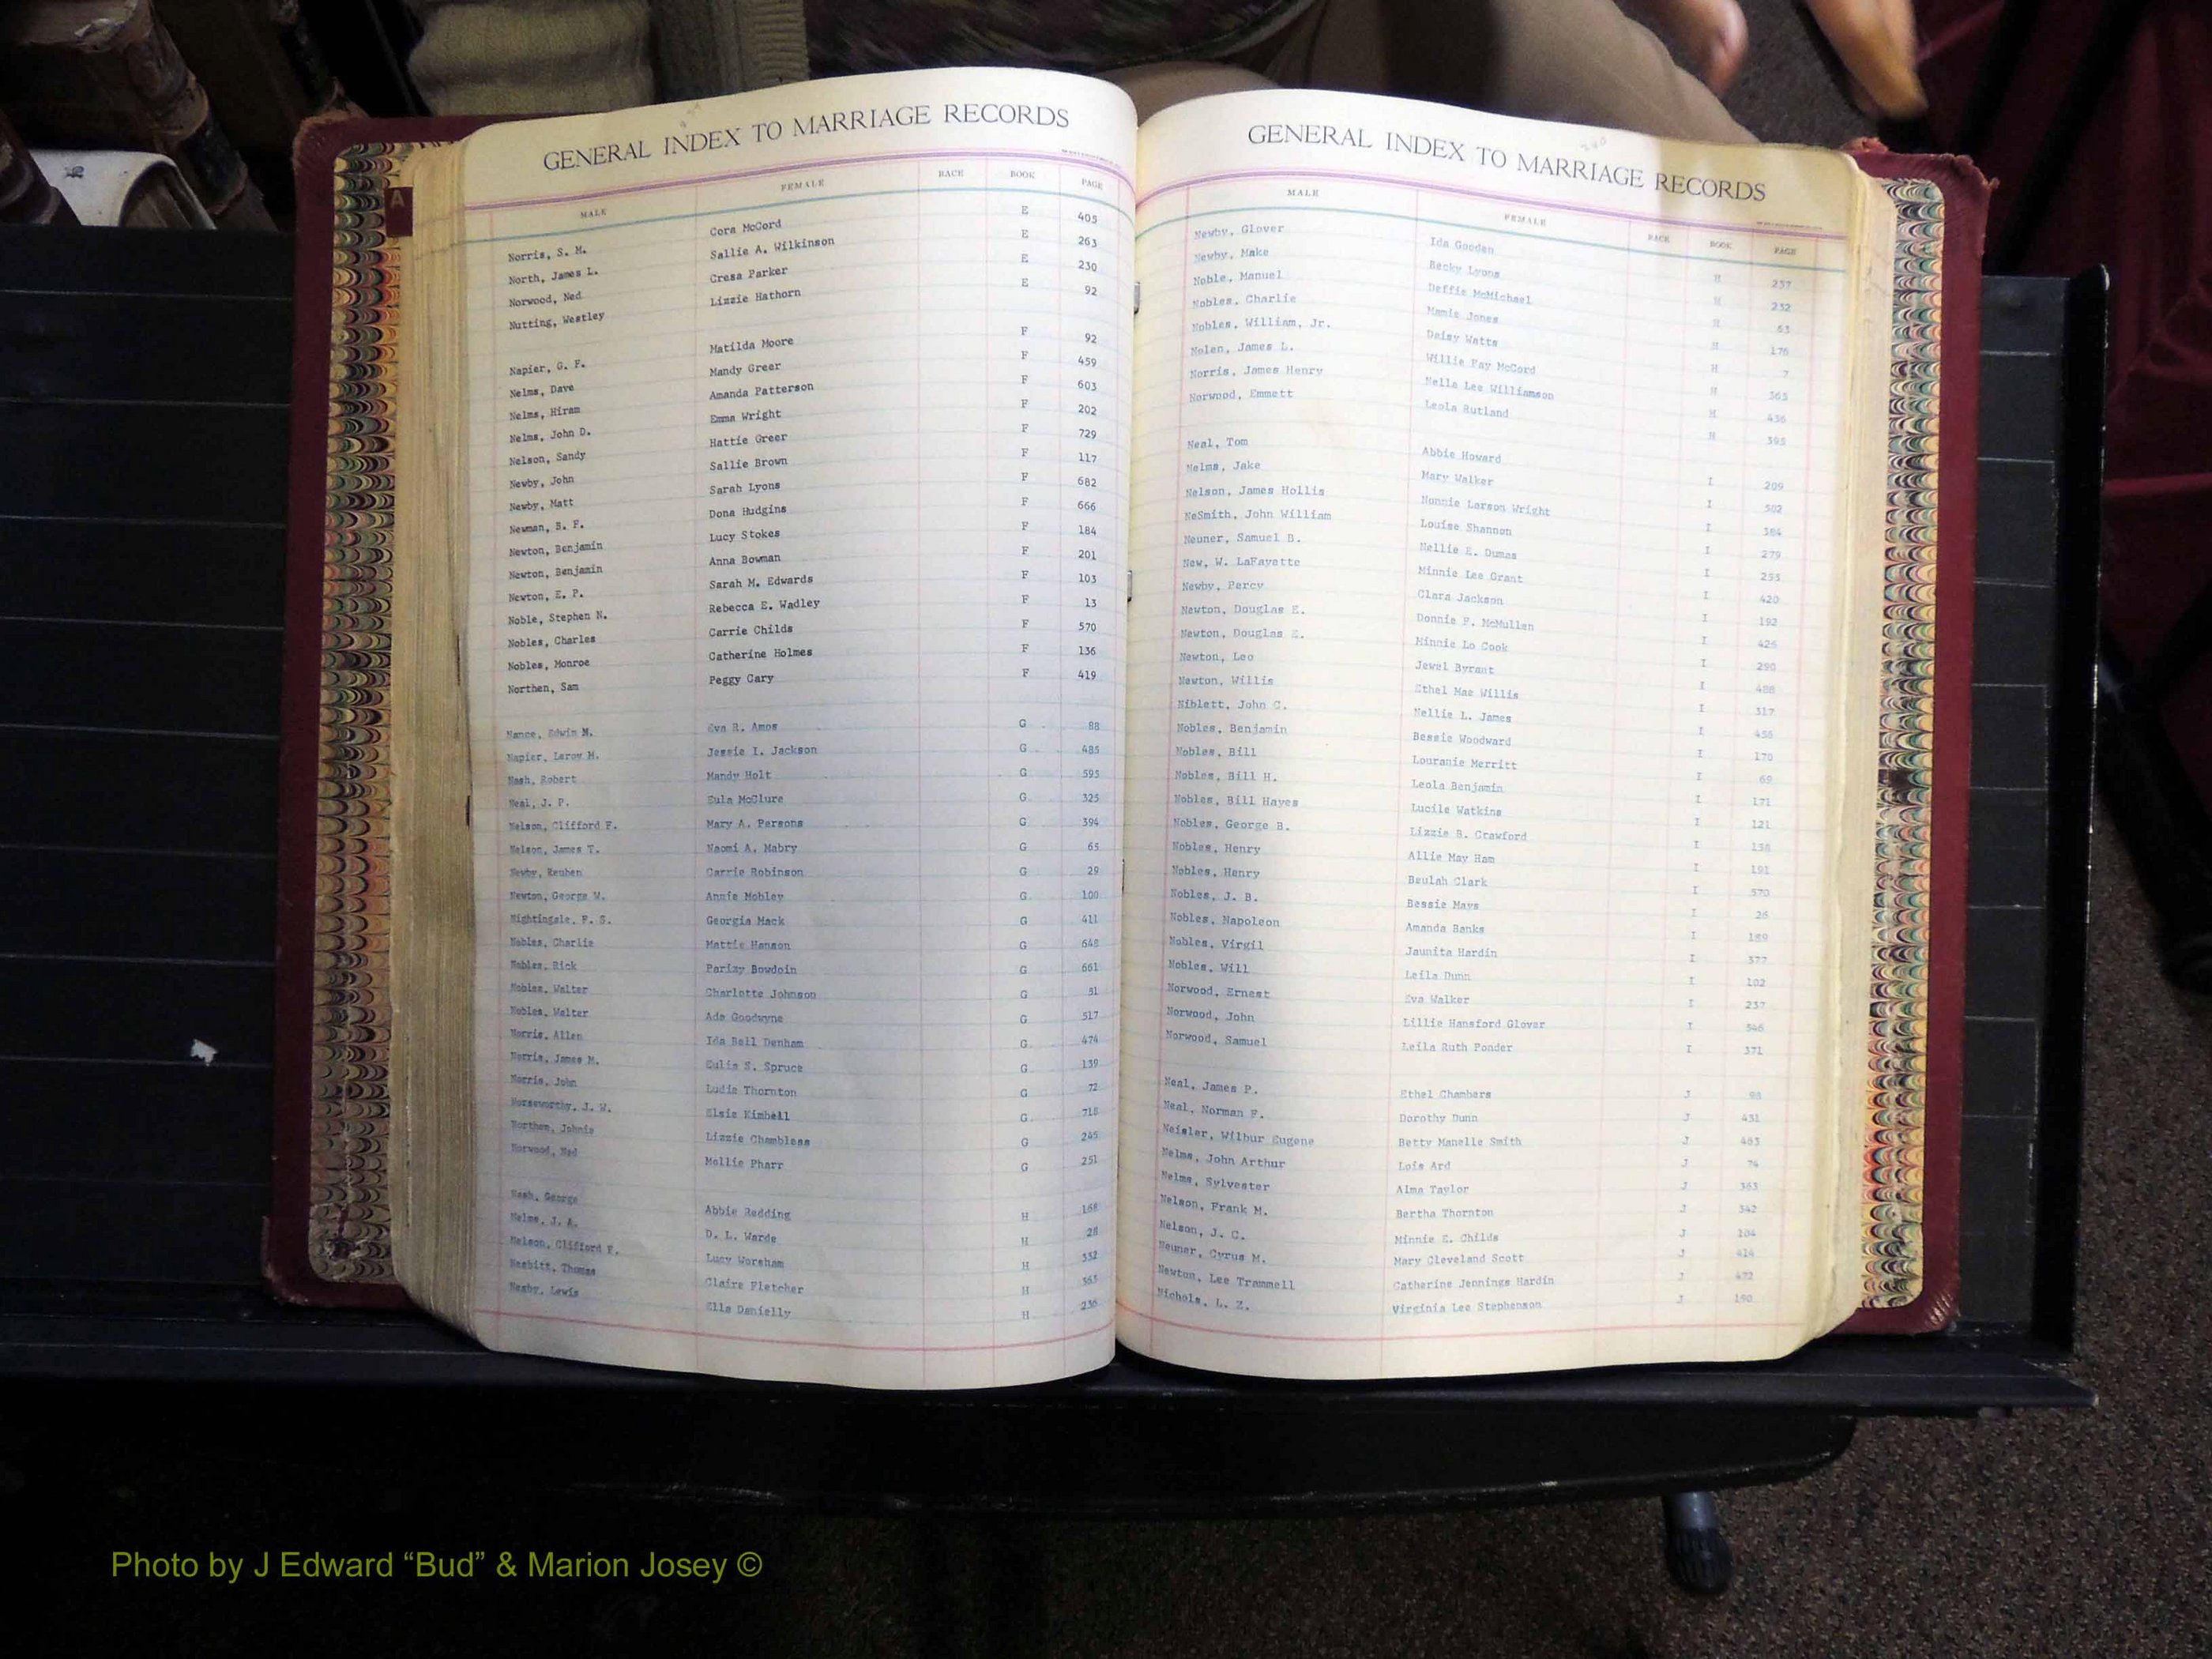 GENERAL INDEX TO MARRIAGE RECORDS
MALE FEMALE RACE BOOK PAGE
Norris, S. M. Cora McCord E 405
North, James L. Sallie A. Wilkinson E 263
Norwood, Ned Cresa Parker E 230
Nutting, Westley Lizzie Hathorn E 92
Napier, G. F. Matilda Moore F 92
Nelms, Dave Mandy Greer F 459
Nelms, Hiram Amanda Patterson F 603
Nelms, John D. Emma Wright F 202
Nelson, Sandy Hattie Greer F 729
Newby, John Sallie Brown F 117
Newby, Matt Sarah Lyons F 682
Newman, B. F. Dona Hudgins F 666
Newton, Benjamin Lucy Stokes F 184
Newton, Benjamin Anna Bowman F 201
Newton, E. P. Sarah M. Edwards F 103
Noble, Stephen N. Rebecca E. Wadley F 13
Nobles, Charles Carrie Childs F 570
Nobles, Monroe Catherine Holmes F 136
Northen, Sam Peggy Cary F 419
Nance, Edwin M. Eva R. Amos G 88
Napier, Leroy M. Jessie I. Jackson G 485
Nash, Robert Mandy Holt G 595
Neal, J. P. Eula McClure G 325
Nelson, Clifford F. Mary A. Persons G 394
Nelson, James T. Naomi A. Mabry G 65
Newby, Reuben Carrie Robinson G 29
Newton, George W. Annie Mobley G 100
Nightingale, F. S. Georgia Mack G 411
Nobles, Charlie Mattie Hanson G 648
Nobles, Rick Parizy Bowdoin G 661
Nobles, Walter Charlotte Johnson G 31
Nobles, Walter Ada Goodwyne G 517
Norris, Allen Ida Bell Denham G 474
Norris, James M. Eulia S. Spruce G 139
Norris, John Ludie Thornton G 72
Norsworthy, J. W. Elsie Kimbell G 718
Northen, Johnie Lizzie Chambless G 245
Norwood, Ned Mollie Pharr G 251
Nash, George Abbie Redding H 168
Nelms, J. A. D. L. Warde H 28
Nelson, Clifford F. Lucy Worsham H 332
Nesbitt, Thomas Claire Fletcher H 363
Newby, Lewis Ella Danielly H 236
GENERAL INDEX TO MARRIAGE RECORDS
MALE FEMALE RACE BOOK PAGE
Newby, Glover Ida Gooden H 237
Newby, Make Becky Lyons H 232
Noble, Manuel Deffie McMichael H 63
Nobles, Charlie Mamie Jones H 176
Nobles, William, Jr. Daisy Watts H 7
Nolen, James L. Willie Fay McCord H 365
Norris, James Henry Nella Lee Williamson H 436
Norwood, Emmett Leola Rutland H 395
Neal, Tom Abbie Howard I 209
Nelms, Jake Mary Walker I 502
Nelson, James Hollis Nonnie Larson Wright I 384
NeSmith, John William Louise Shannon I 279
Neuner, Samuel B. Nellie E. Dumas I 253
New, W. LaFayette Minnie Lee Grant I 420
Newby, Percy Clara Jackson I 192
Newton, Douglas E. Donnie P. McMullen I 426
Newton, Douglas E. Minnie Lo Cook I 290
Newton, Leo Jewel Byrant I 488
Newton, Willis Ethel Mae Willis I 317
Niblett, John C. Nellie L. James I 456
Nobles, Benjamin Bessie Woodward I 170
Nobles, Bill Louranie Merritt I 69
Nobles, Bill H. Leola Benjamin I 171
Nobles, Bill Hayes Lucile Watkins I 121
Nobles, George B. Lizzie B. Crawford I 158
Nobles, Henry Allie May Ham I 191
Nobles, Henry Beulah Clark I 570
Nobles, J. B. Bessie Mays I 26
Nobles, Napoleon Amanda Banks I 189
Nobles, Virgil Jaunita Hardin I 377
Nobles, Will Leila Dunn I 102
Norwood, Ernest Eva Walker I 237
Norwood, John Lillie Hansford Glover I 546
Norwood, Samuel Leila Ruth Ponder I 371
Neal, James P. Ethel Chambers J 98
Neal, Norman F. Dorothy Dunn J 431
Neisler, Wilbur Eugene Betty Manelle Smith J 463
Nelms, John Arthur Lois Ard J 74
Nelms, Sylvester Alma Taylor J 363
Nelson, Frank M. Bertha Thornton J 342
Nelson, J. C. Minnie E. Childs J 104
Neuner, Cyrus M. Mary Cleveland Scott J 414
Newton, Lee Trammell Catherine Jennings Hardin J 472
Nichols, L. Z. Virginia Lee Stephenson J 190
A
Photo by J Edward “Bud” & Marion Josey ©